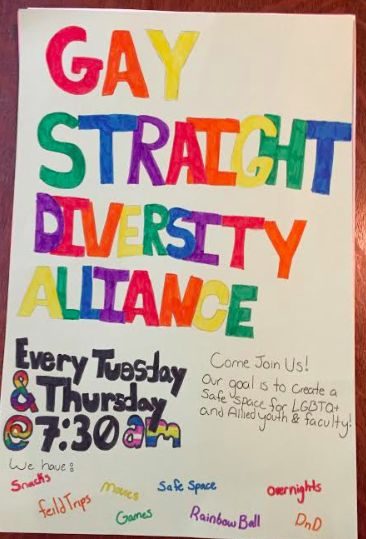 GAY
STRAIGHT
DIVERSITY
ALLIANCE
Every Tuesday
& Thursday
@ 7:30 am
Come Join Us!
Our goal is to create a
Safe space for LGBTQ+
and Allied youth & faculty!
We have:
Snacks
Movies
Safe Space
Overnights
feild Trips
Games
Rainbow Ball
DnD